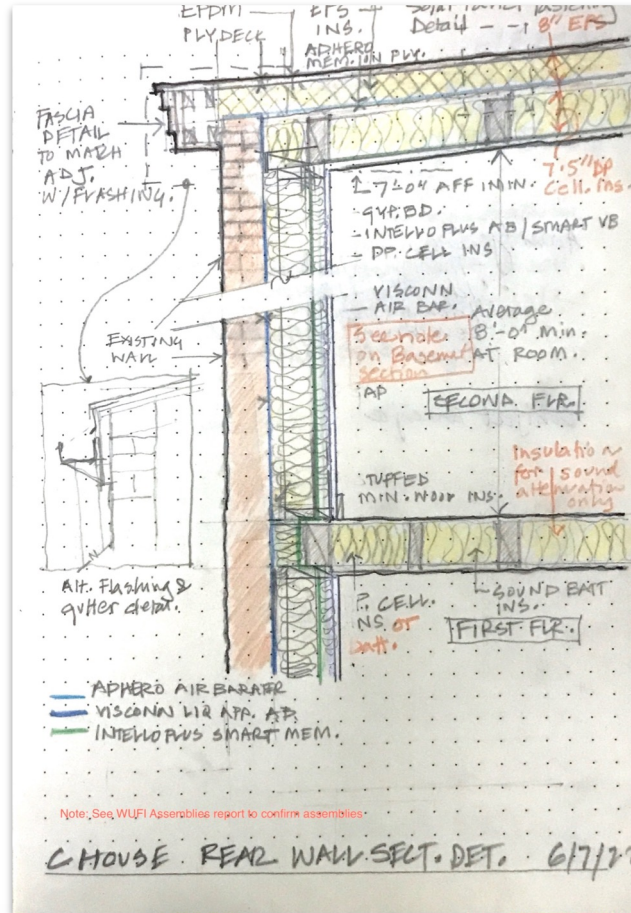 EPDM
PLYDECK
EPS
INS.
ADHERO
MEM. ION PLY.
Detail
8" EPS
FASCIA
DETAIL
TO MACH
ADJ.
W/FLASHING.
7.5" DP
Cell. Ins.
7'-0" AFF MIN.
GYP. BD.
INTELLO PLUS AB/SMART VB
DP CELL INS
VISCONN
AIR BAR.
Average
8'-0" Min.
AT ROOM.
See note
on Basement
section
AP
EXISTING
WALL
SECOND. FLR.
Insulation
for sound
attenuation
only
STUFFED
MIN. WOOL INS.
Alt. Flashing &
gutter detat.
P. CELL
INS. or
batt.
SOUND BATT
INS.
FIRST FLR.
ADHERO AIR BARAIER
VISCONN LIQ APP. AB
INTELLO PLUS SMART MEM.
Note: See WUFI Assemblies report to confirm assemblies
C HOUSE REAR WALL SECT. DET. 6/7/2